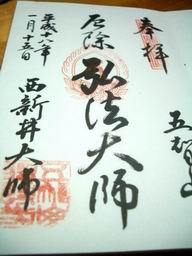 奉拝
厄除
弘法大師
平成十六年
一月十五日
西新井大師